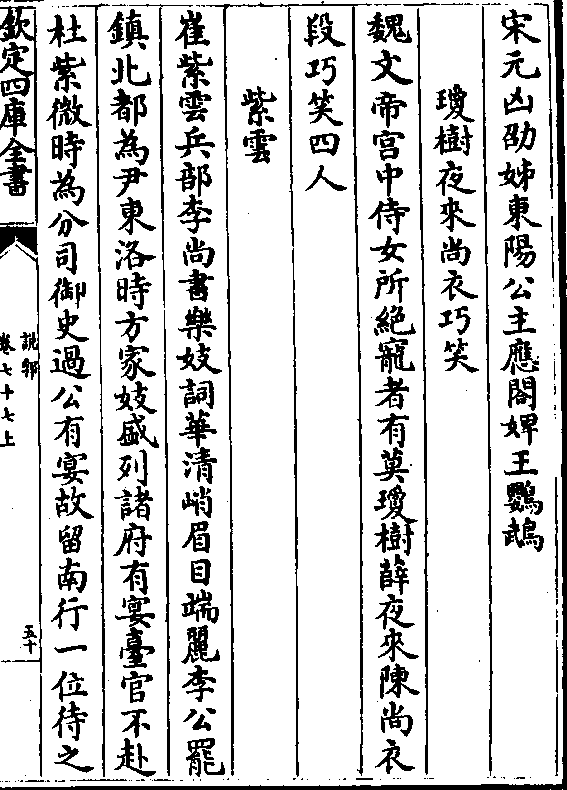 宋元凶劭姊東陽公主應閤婢王鸚鵡
瓊樹夜來尚衣巧笑
魏文帝宫中侍女所絶寵者有莫瓊樹薛夜來陳尚衣
段巧笑四人
紫雲
崔紫雲兵部李尚書樂妓詞華清峭眉目端麗李公罷
鎮北都為尹東洛時方家妓盛列諸府有宴臺官不赴
杜紫微時為分司御史過公有宴故留南行一位待之
欽定四庫全書
說郛
卷七十七上
五十